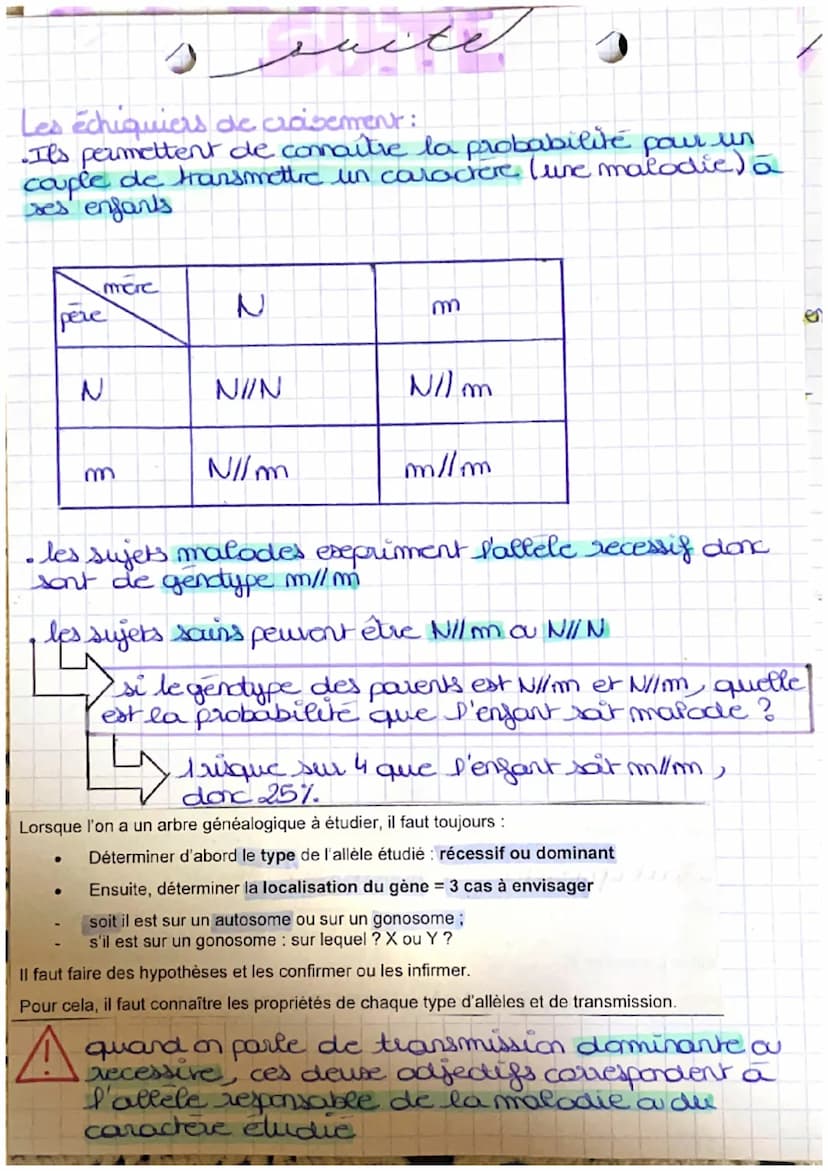 suite
Les échiquiers de croisement :
.Ils permettent de connaître la probabilité pour un
couple de transmettre un caractère (une maladie) à
ses enfants
mère
père
N m
N N//N N//m
m N//m m//m
. les sujets malades expriment l'allèle recessif donc
sont de génotype m//m
. les sujets sains peuvent être N//m ou N//N
si le génotype des parents est N//m et N//m, quelle
est la probabilité que l'enfant soit malade ?
1 risque sur 4 que l'enfant soit m//m,
donc 25%.
Lorsque l'on a un arbre généalogique à étudier, il faut toujours :
• Déterminer d'abord le type de l'allèle étudié : récessif ou dominant
• Ensuite, déterminer la localisation du gène = 3 cas à envisager
- soit il est sur un autosome ou sur un gonosome ;
- s'il est sur un gonosome : sur lequel ? X ou Y ?
Il faut faire des hypothèses et les confirmer ou les infirmer.
Pour cela, il faut connaître les propriétés de chaque type d'allèles et de transmission.
! quand on parle de transmission dominante ou
recessive, ces deux adjectifs correspondent à
l'allèle responsable de la maladie ou du
caractère étudié